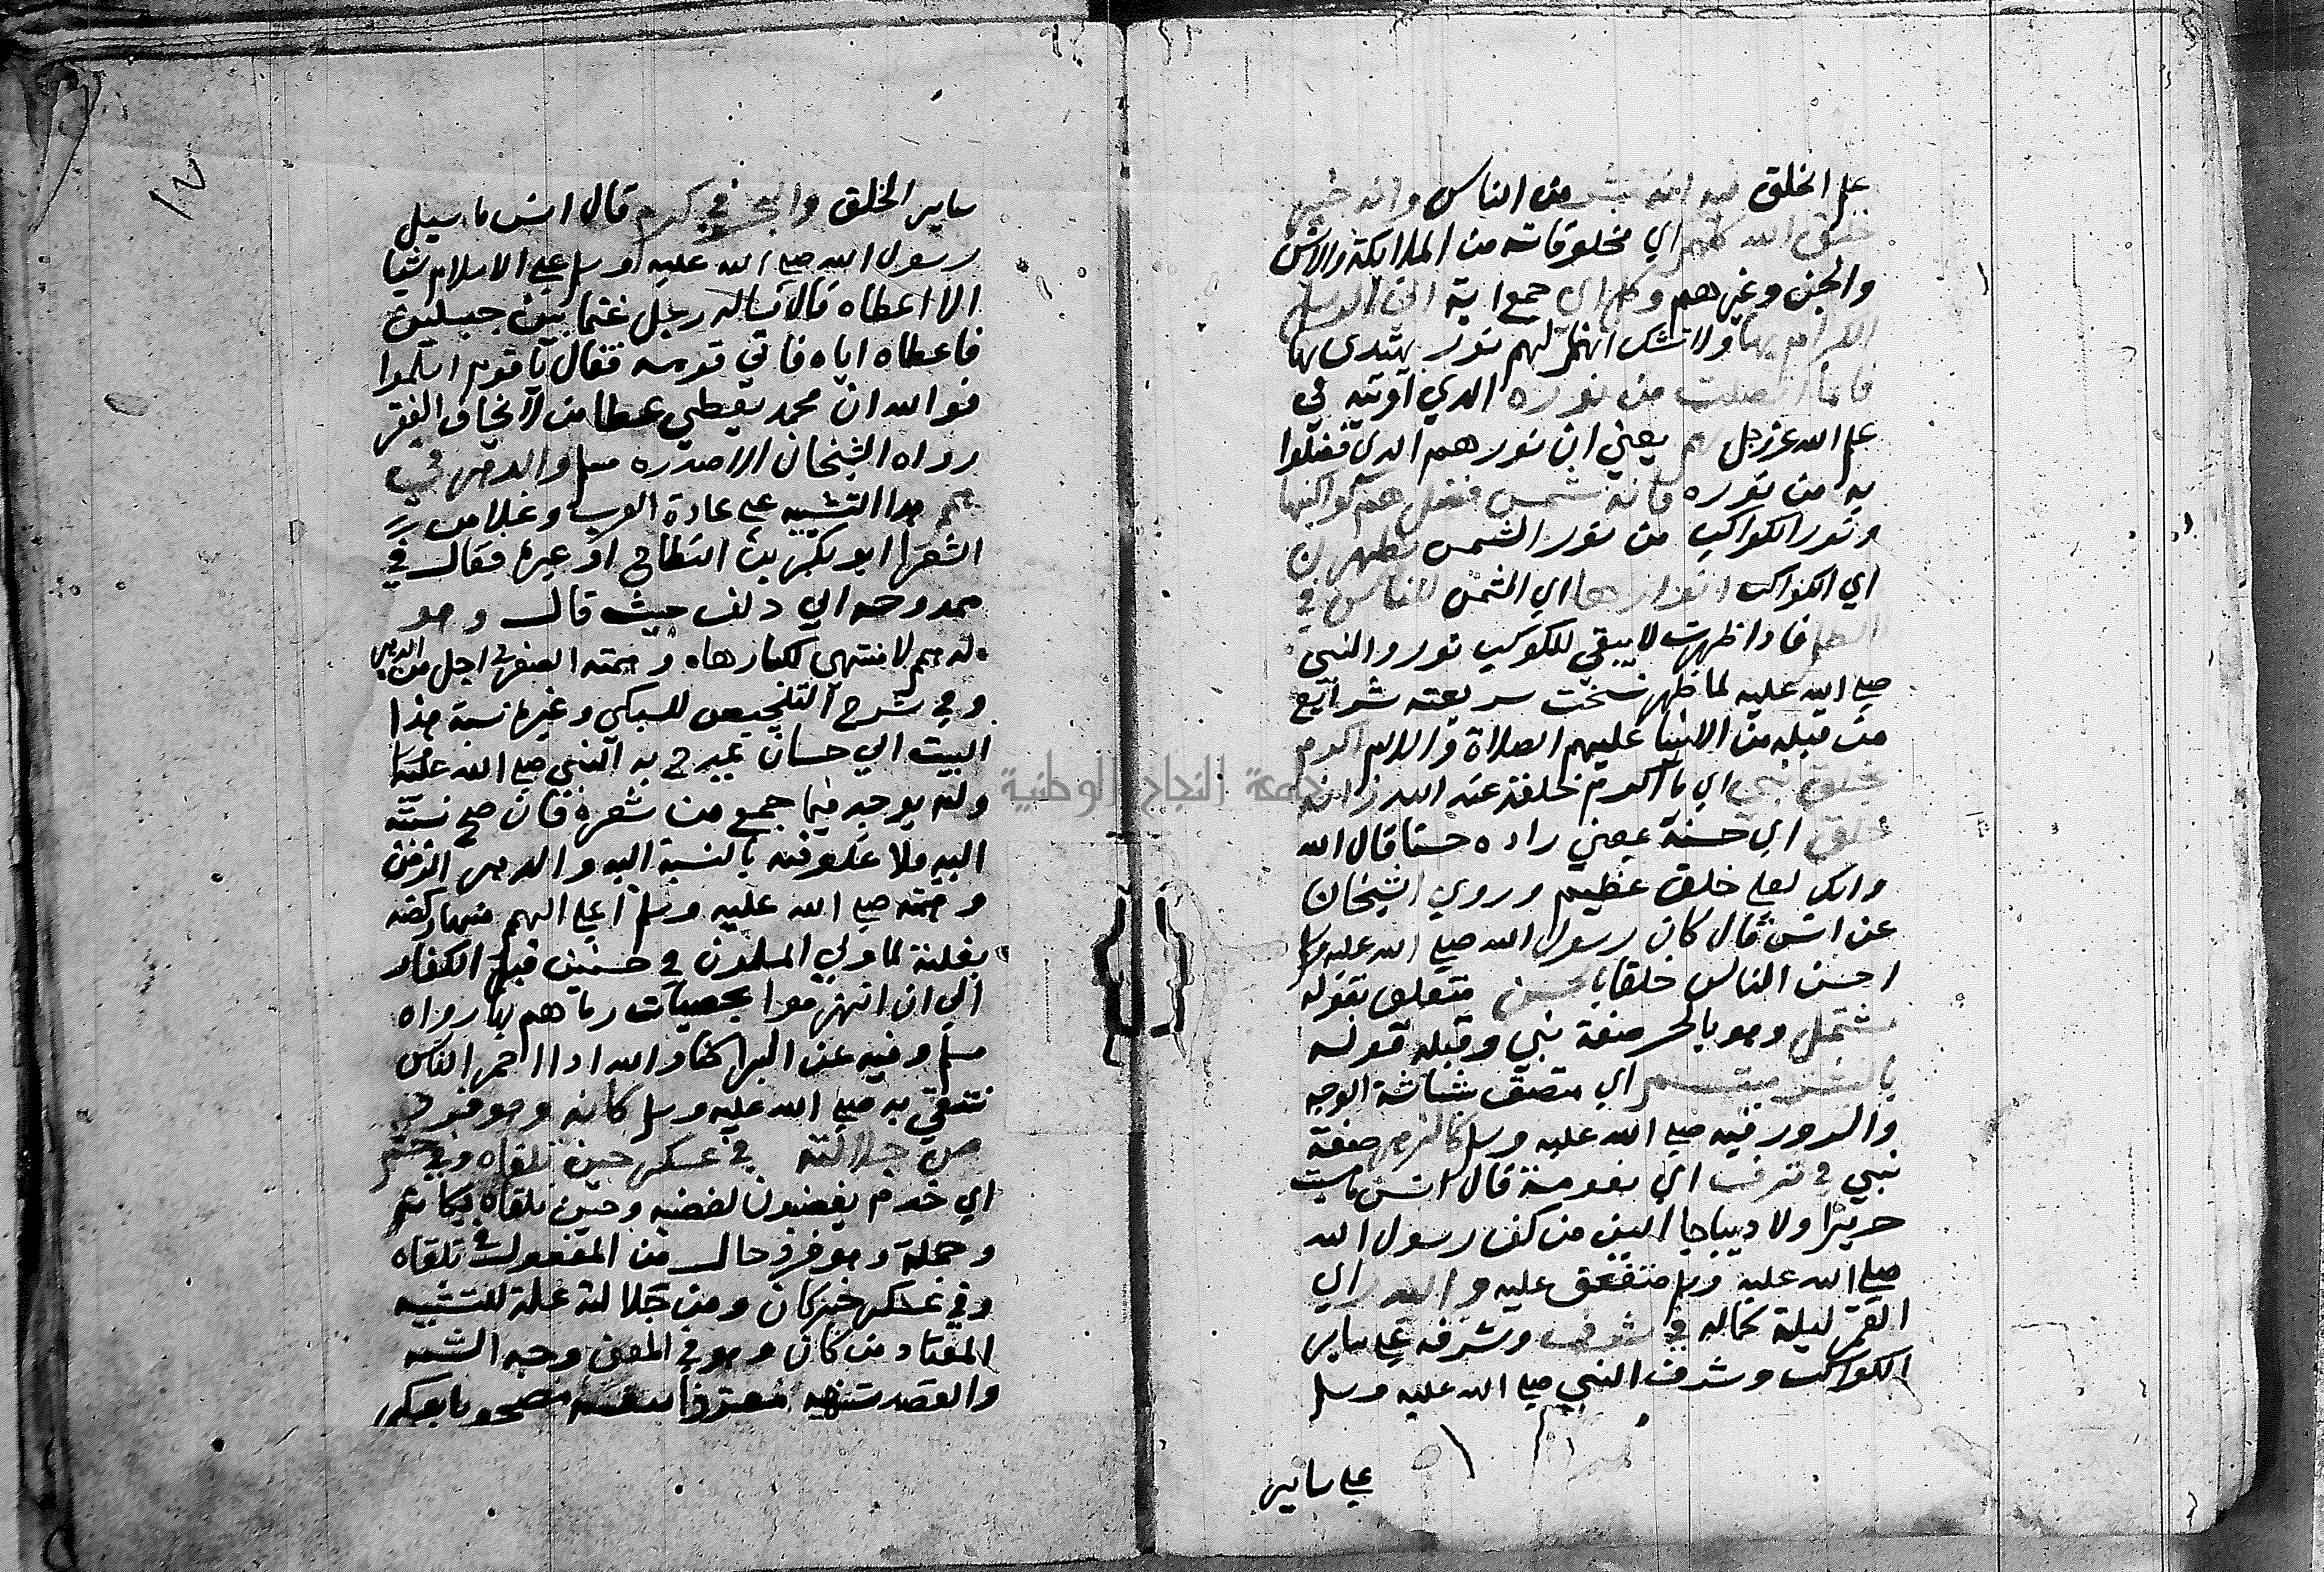 علم الخلق فيه انه بشر من الناس وانه خير
خلق الله كلهم اي مخلوقاته من الملائكة والانس
والجن وغيرهم وكل اي جمع اية اتى الرسل
الكرام بها ولا شك انها لهم نور يهتدى بها
فانما اتصلت من نوره الدي اوتيه في
علم الله عز وجل بهم يعني ان نورهم الدي فضلوا
به من نوره فانه شمس فضل هم كواكبها
ونور الكواكب من نور الشمس يظهرن
اي الكواكب انوارها اي الشمس للناس في
الظلم فادا ظهرت لا يبقي للكوكب نور والنبي
صلي الله عليه لما ظهر نسخت سريعته شرايع
من قبله من الانبيا عليهم الصلاة والسلام اكرم
بخلق نبي اي ما اكرم خلقه عند الله زانه
خلق اي حسنة يعني زاده حسنا قال الله
وانك لعلي خلق عظيم وروي الشيخان
عن انس قال كان رسول الله صلي الله عليه وسلم
احسن الناس خلقا بالحسن متعلق بقوله
مشتمل وهو بالجر صفة نبي وقبله قوله
بالبشر متسم اي متصف ببشاشة الوجه
والسرور فيه صلي الله عليه وسلم كالزهر صفة
نبي في ترف اي نعومة قال انس ما مسيت
حريرا ولا ديباجا الين من كف رسول الله
صلي الله عليه وسلم متفق عليه والبدر اي
القمر ليلة كماله في شرف وشرفه علي ساير
الكواكب وشرف النبي صلي الله عليه وسلم
علي ساير
ساير الخلق والبحر في كرم قال انس ما سيل
رسول الله صلي الله عليه وسلم علي الاسلام شيا
الا اعطاه قال فساله رجل غنما بين جبلين
فاعطاه اياه فاتي قومه فقال يا قوم اسلموا
فوالله ان محمد يعطي عطا من لا يخاف الفقر
رواه الشيخان الا صدره مسلم والدهر في
همم هدا التشبيه علي عادة العرب وغلا من
الشعرا ابو بكر بن النطاح او غيره فقال في
ممدوحه ابي دلف حيث قال وهو
له همم لا منتهي لكبارها وهمته الصغري اجل من الدهر
وفي شرح التلخيص للسبكي وغيره نسبة هذا
البيت الي حسان يمدح به النبي صلي الله عليه
ولم يوجد فيما جمع من شعره فان صح نسبته
اليه فلا غلو فيه بالنسبة اليه والدهر الزمن
وهمته صلي الله عليه وسلم اعلي الهمم منها ركضه
بغلته لما ولي المسلمون في حنين قبل الكفار
الي ان انهزموا بحصيات رماهم بها رواه
مسلم وفيه عن البرا كنا والله ادا احمر الناس
نتقي به صلي الله عليه وسلم كانه وهو فرد
من جلالته في عسكر حين تلقاه وفي حشم
اي خدم يغضبون لغضبه وحين تلقاه بكانه
وجملة وهو فرد حال من المفعول في تلقاه
وفي عسكر خبر كان ومن جلالته علة للتشبيه
المفاد من كان وهو في المعني وجه الشبه
والقصد تشبيهه منفردا بنفسه مصحوبا بعسكر
جامعة النجاح الوطنية